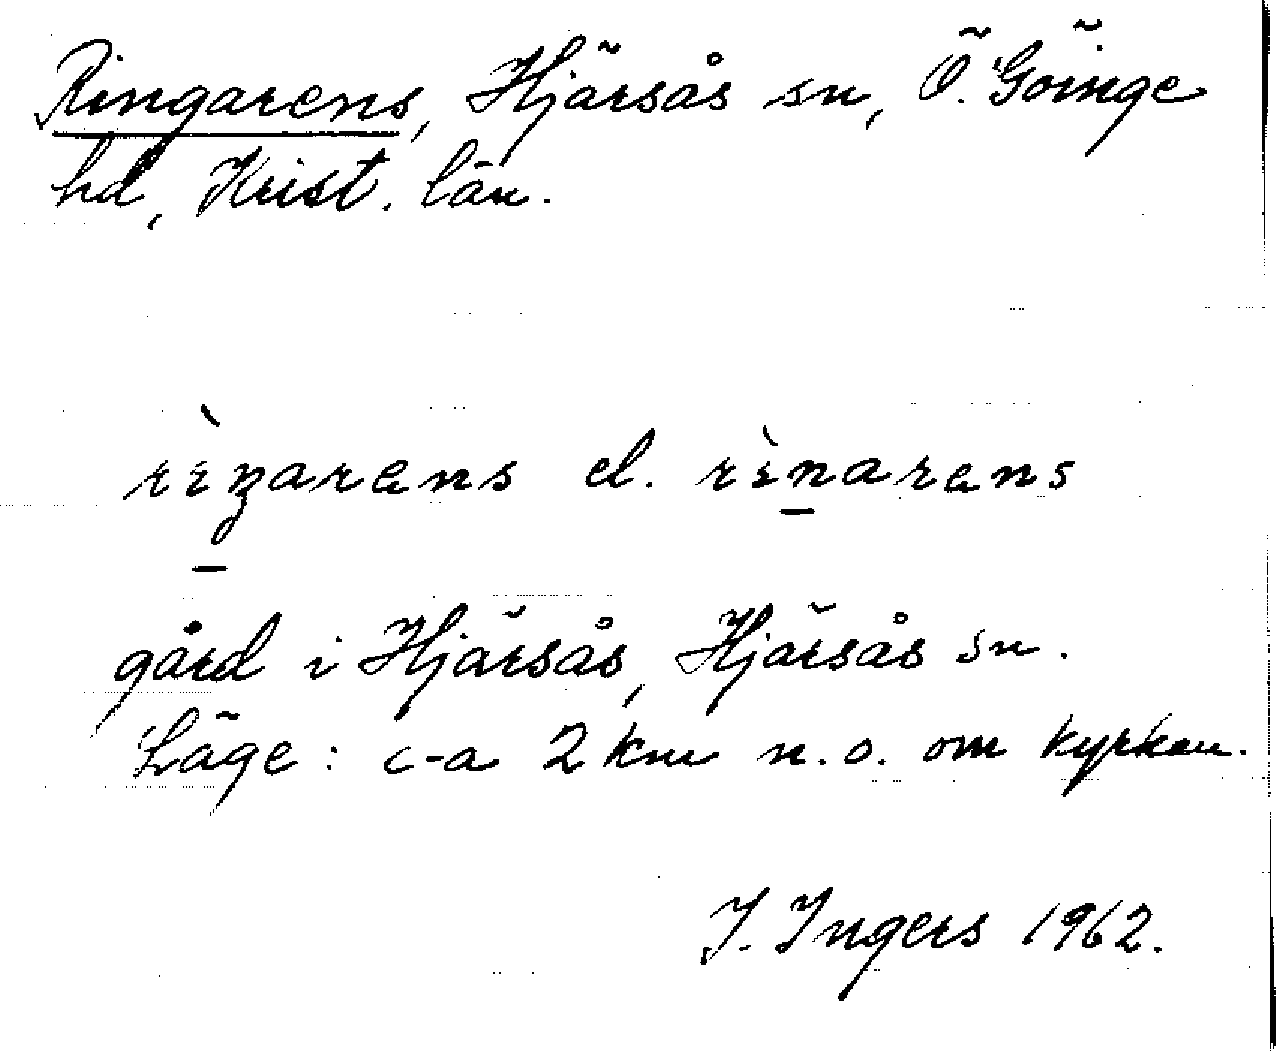 Ringarens, Hjärsås sn, Ö. Göinge
hd, Krist. län.
rìŋarens el. rìnarens
gård i Hjärsås, Hjärsås sn.
Läge: c-a 2 km n.o. om kyrkan.
I. Ingers 1962.